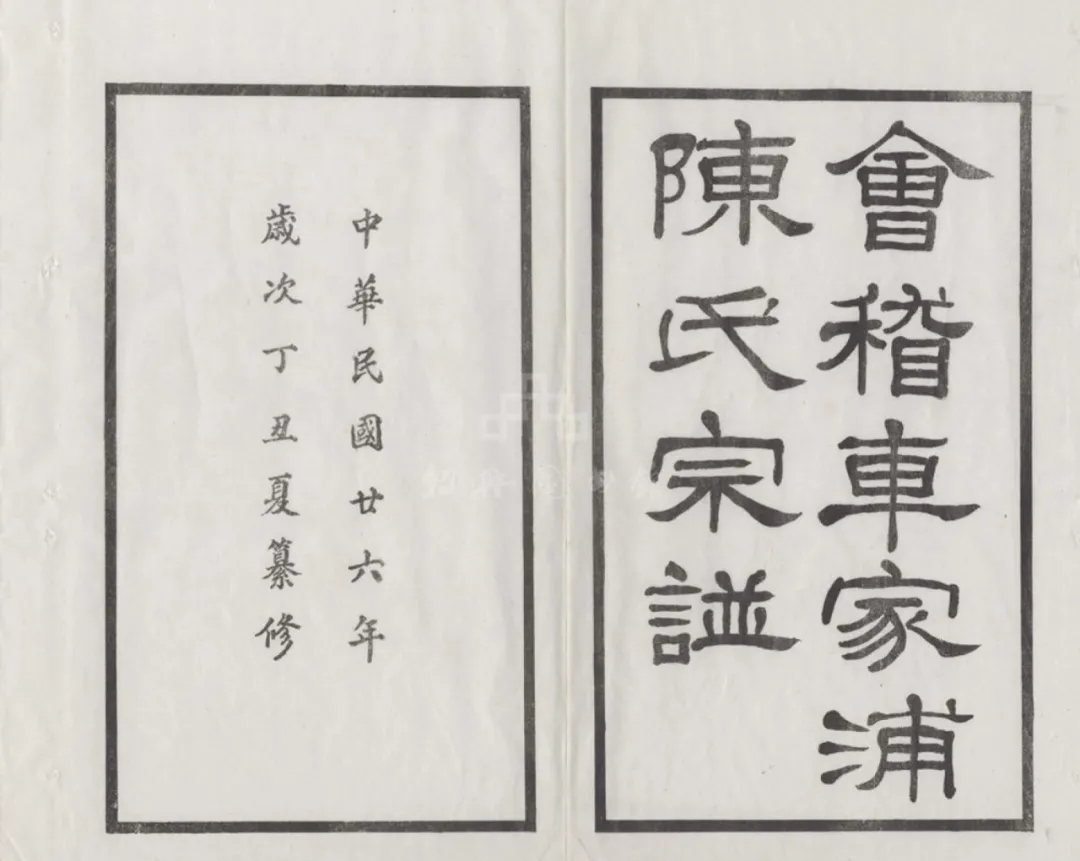 會稽車家浦
陳氏宗譜
中華民國廿六年
歲次丁丑夏纂修